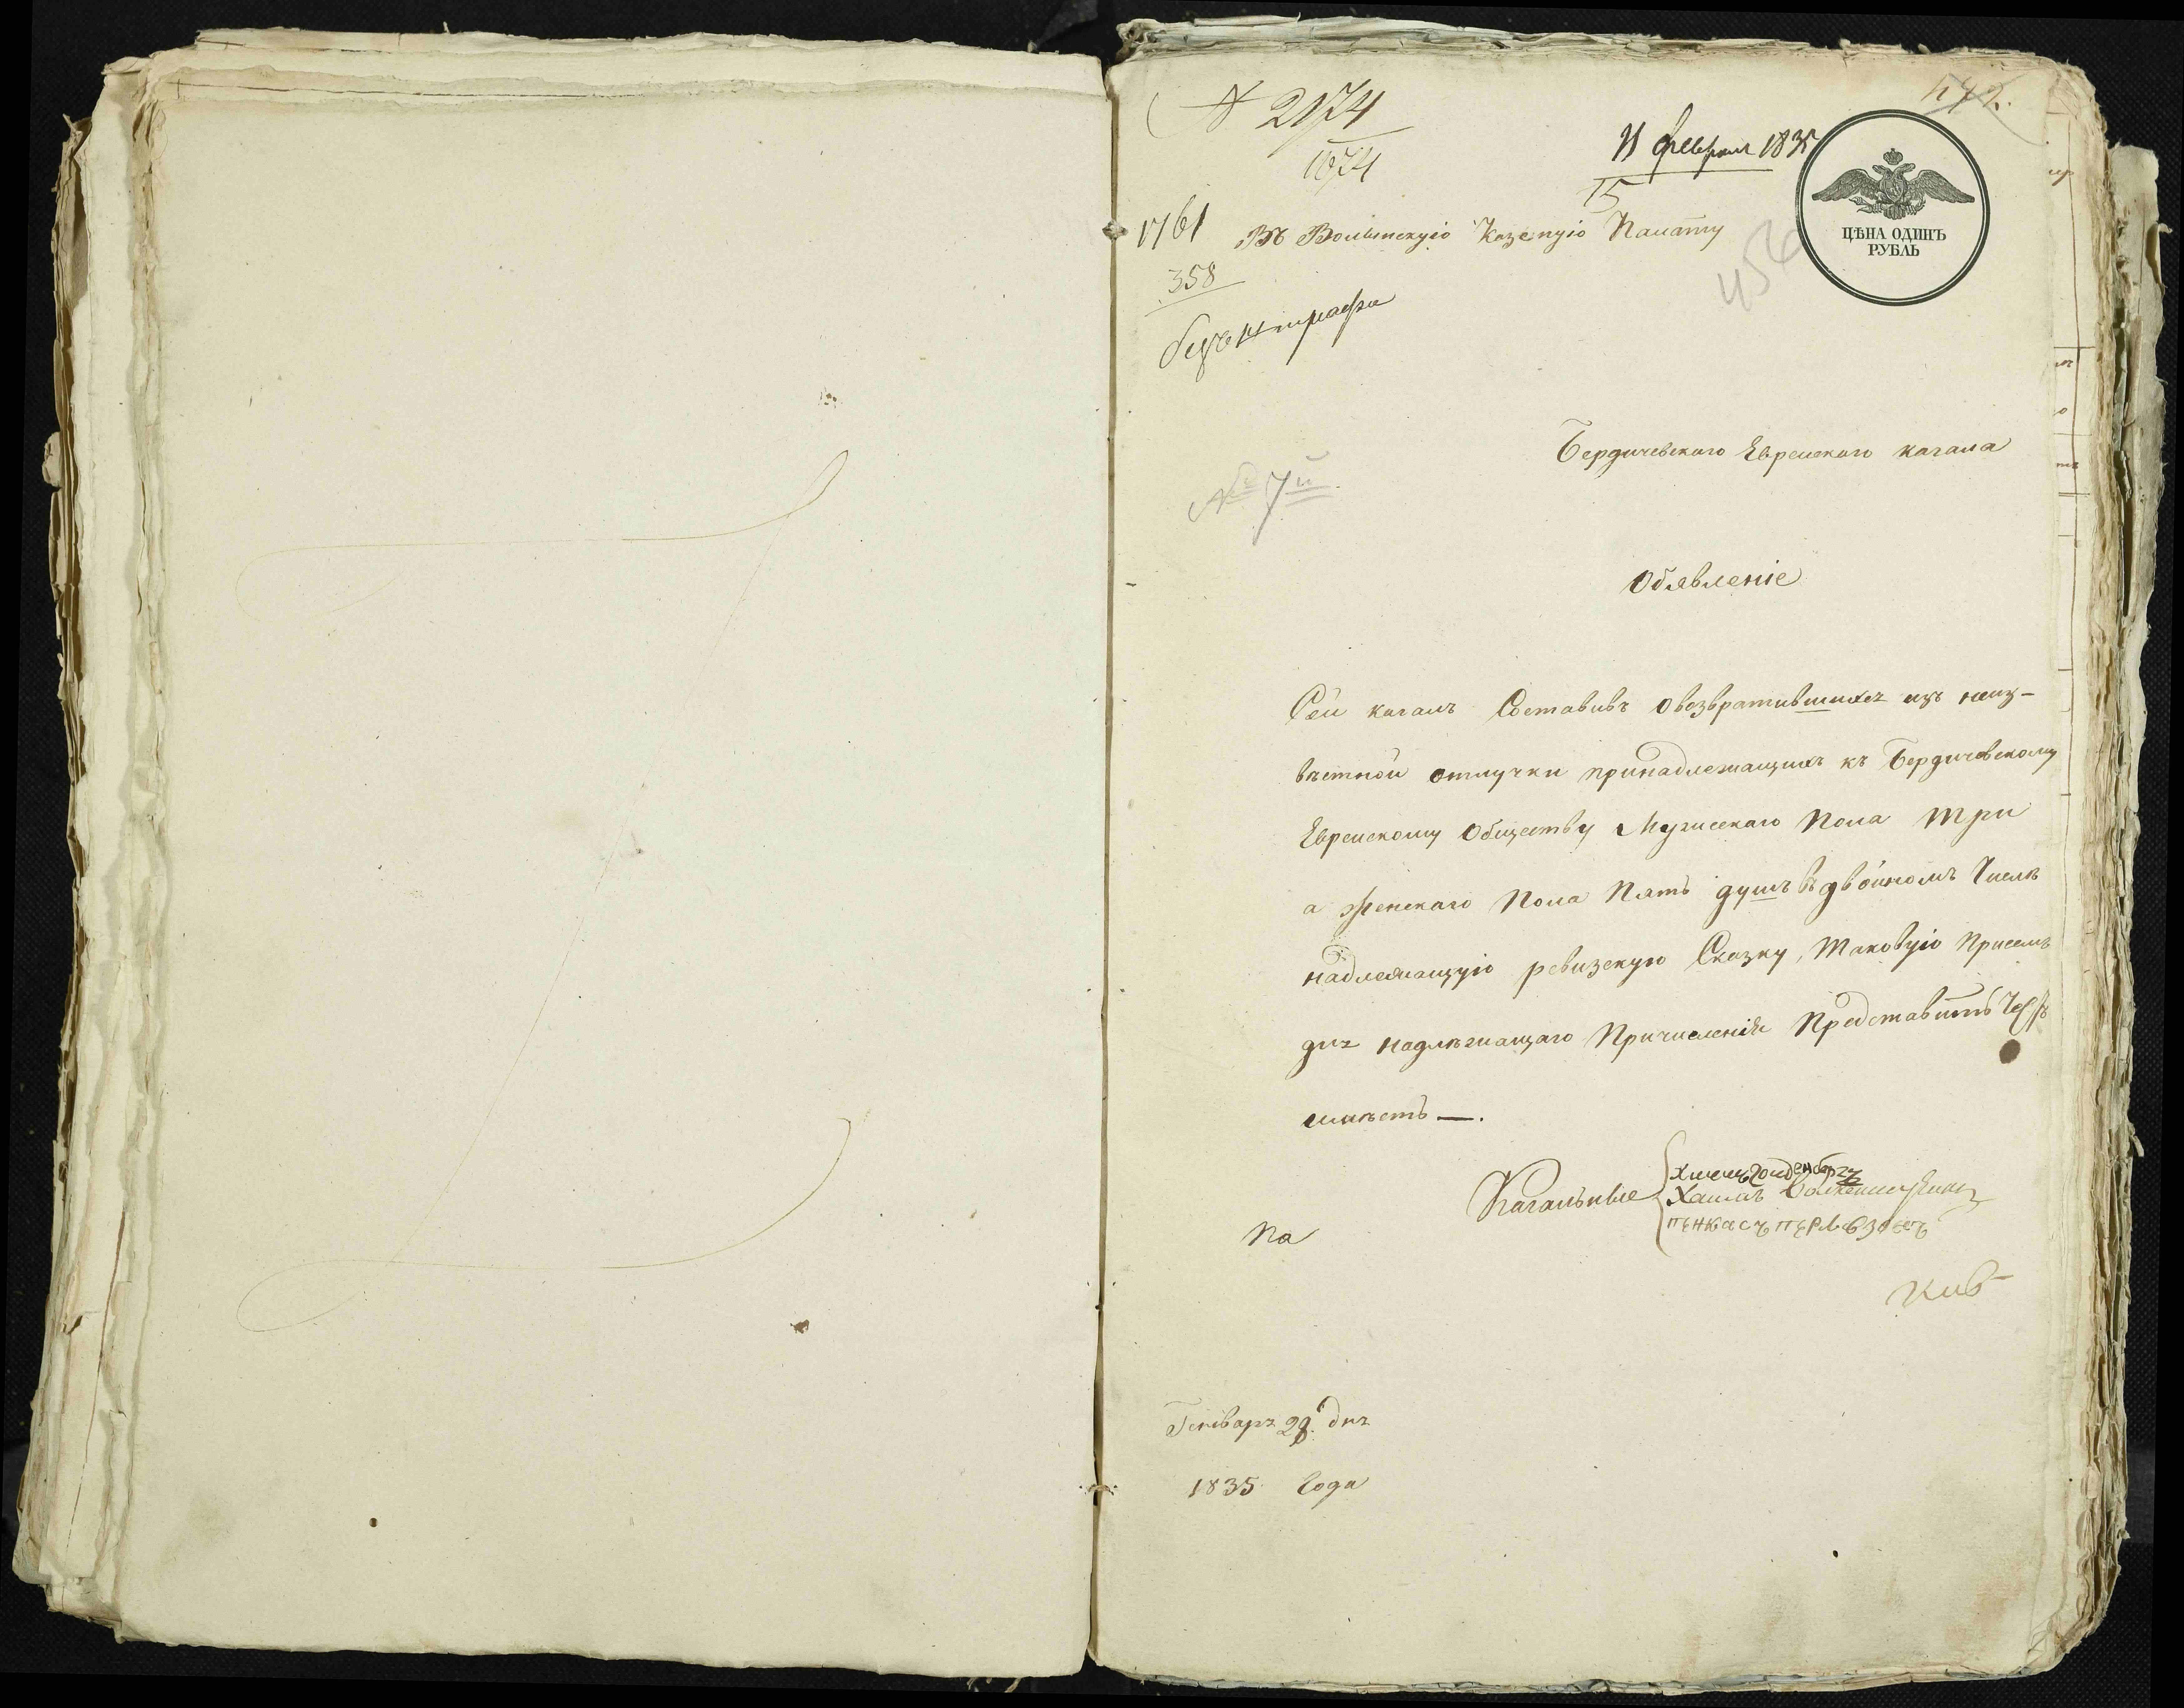 № 2174
1674
11 февраля 1835
15
1761
358
Въ Волынскую Казеную Палату
ЦѢНА ОДИНЪ
РУБЛЬ
456
безъ штрафа
Бердичевского Еврейского кагала
№ 7й
Обявленіе
Сей кагалъ Составивъ овозвратившихся изъ неиз-
вѣстной отлучки принадлежащихъ къ Бердичевскому
Еврейскому Обществу Мужескаго Пола Три
а Женскаго Пола Пять душъ въ двойномъ Числѣ
надлежащую ревизскую Сказку, Таковую Присемъ
для надлѣжащаго Причисленія Представить Честь
имѣетъ —.
Кагальные
Хаимъ
Па
Генваря 28 дня
1835 Года